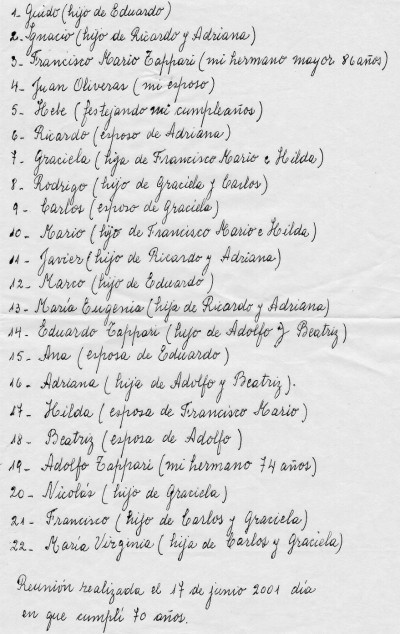 1- Guido (hijo de Eduardo)
2- Ignacio (hijo de Ricardo y Adriana)
3- Francisco Mario Tappari (mi hermano mayor 86 años)
4- Juan Oliveras (mi esposo)
5- Hebe (festejando mi cumpleaños)
6- Ricardo (esposo de Adriana)
7- Graciela (hija de Francisco Mario e Hilda)
8- Rodrigo (hijo de Graciela y Carlos)
9- Carlos (esposo de Graciela)
10- Mario (hijo de Francisco Mario e Hilda)
11- Javier (hijo de Ricardo y Adriana)
12- Marco (hijo de Eduardo)
13- María Eugenia (hija de Ricardo y Adriana)
14- Eduardo Tappari (hijo de Adolfo y Beatriz)
15- Ana (esposa de Eduardo)
16- Adriana (hija de Adolfo y Beatriz).
17- Hilda (esposa de Francisco Mario)
18- Beatriz (esposa de Adolfo)
19- Adolfo Tappari (mi hermano 74 años)
20- Nicolás (hijo de Graciela)
21- Francisco (hijo de Carlos y Graciela)
22- María Virginia (hija de Carlos y Graciela)
Reunión realizada el 17 de junio 2001 día
en que cumplí 70 años.